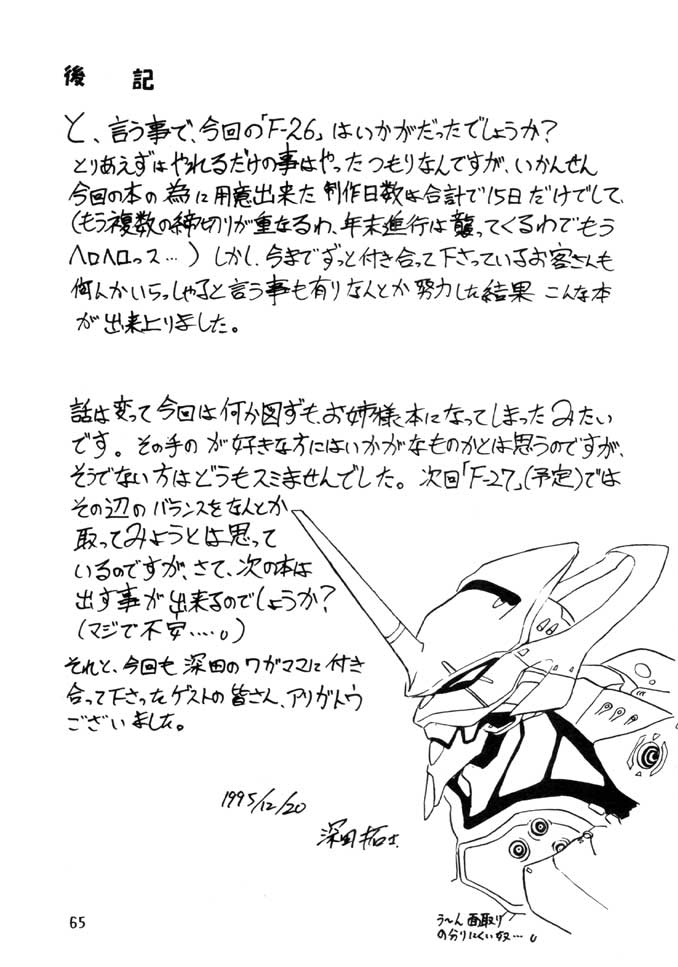 後記
と、言う事で、今回の「F-26」はいかがだったでしょうか?
とりあえずはやれるだけの事はやったつもりなんですが、いかんせん
今回の本の為に用意出来た制作日数は合計で15日だけでして、
(もう複数の締切りが重なるわ、年末進行は襲ってくるわでもう
ヘロヘロっス…)しかし、今までずっと付き合って下さっているお客さんも
何んかいらっしゃると言う事も有りなんとか努力した結果 こんな本
が出来上りました。
話は変って今回は何か図ずも、お姉様本になってしまったみたい
です。その手のが好きな方にはいかがなものかとは思うのですが、
そうでない方はどうもスミませんでした。次回「F-27」(予定)では
その辺のバランスをなんとか
取ってみようとは思って
いるのですが、さて、次の本は
出す事が出来るのでしょうか?
(マジで不安……。)
それと、今回も深田のワガママに付き
合って下さったゲストの皆さん、アリガトウ
ございました。
1995/12/20
深田拓士
う〜ん面取り
の分りにくい奴…。
65